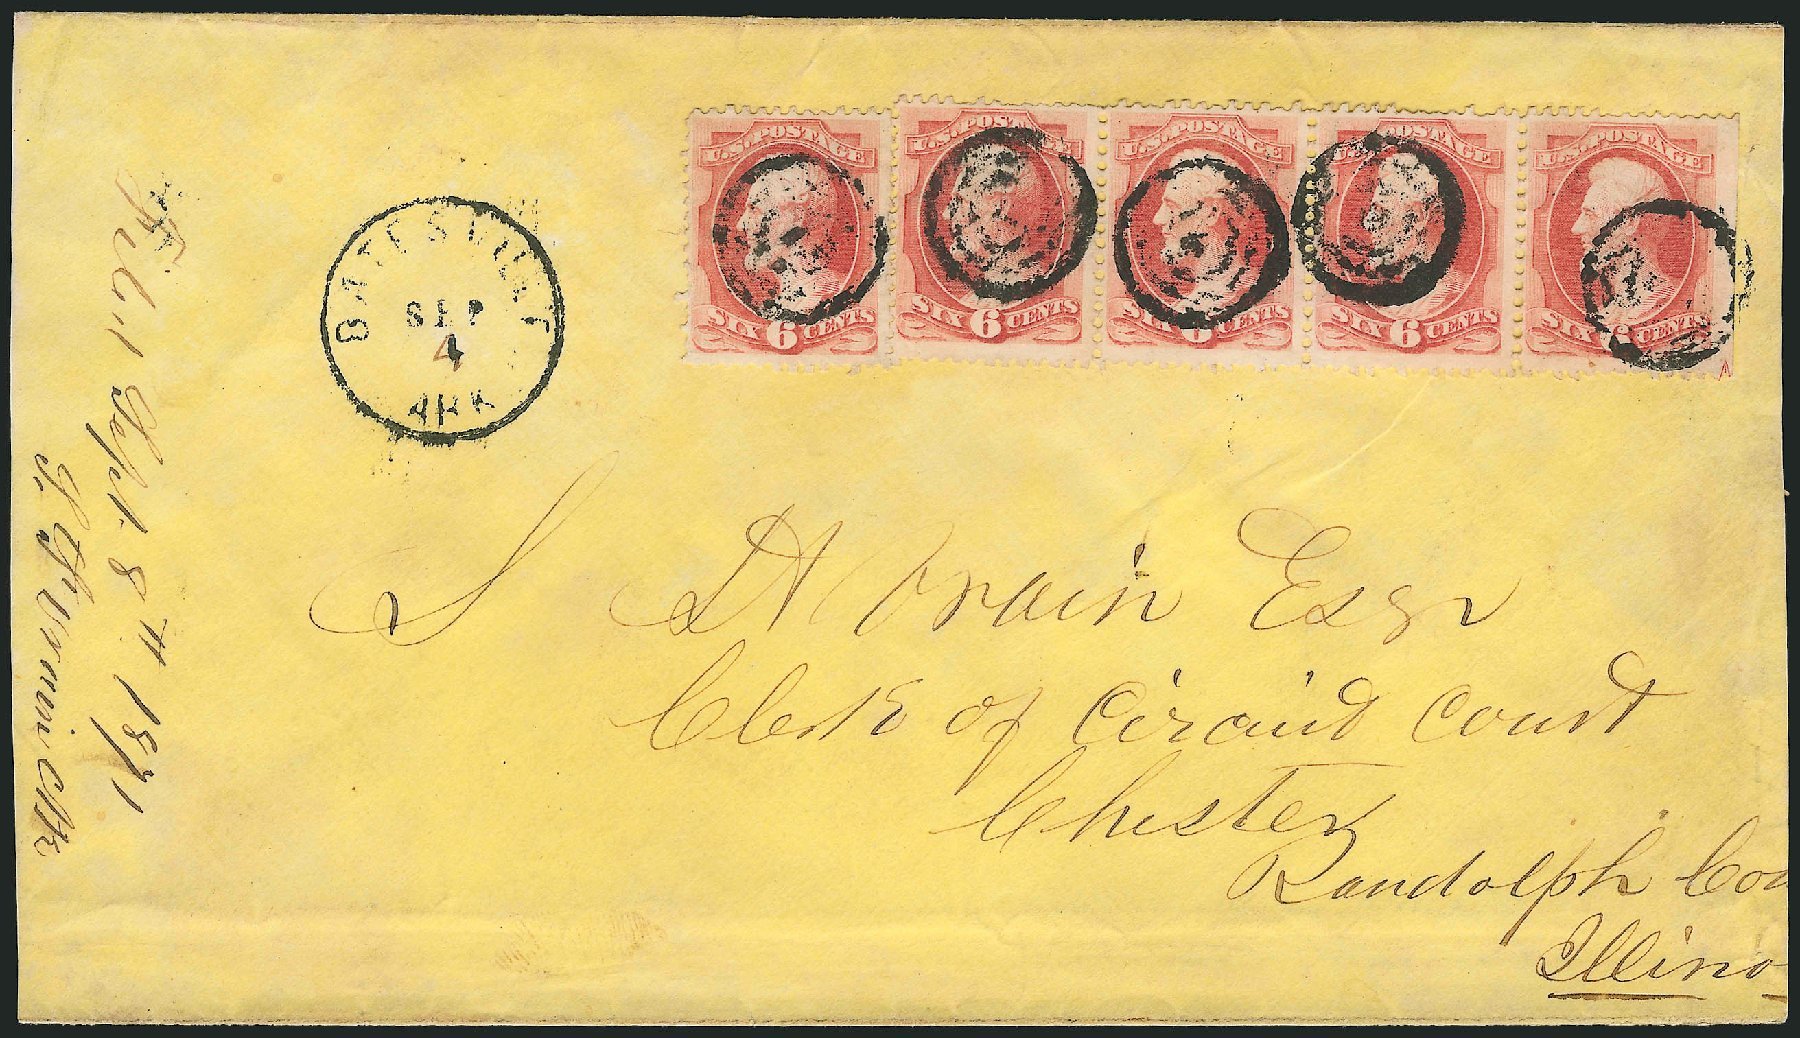 U.S.POSTAGE U.S.POSTAGE U.S.POSTAGE POSTAGE U.S.POSTAGE
SIX 6 CENTS SIX 6 CENTS SIX 6 CENTS SIX 6 CENTS SIX CENTS
BATESVILLE
SEP
4
ARK
Filed Sept. 8th 1871
S. St Vrain Clk
S St Vrain Esqr
Clerk of Circuit Court
Chester
Randolph Cou
Illino